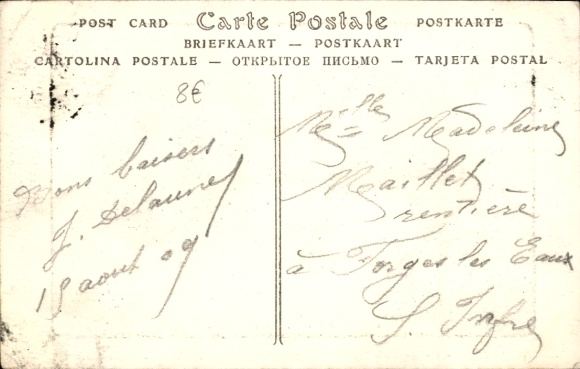 POST CARD Carte Postale POSTKARTE
BRIEFKAART — POSTKAART
CARTOLINA POSTALE — ОТКРЫТОЕ ПИСЬМО — TARJETA POSTAL
8€
Bons baisers
J. Delaunay
15 aout 09
Melle Madeleine
Maillet
rentière
à Forges les Eaux
S. Infre